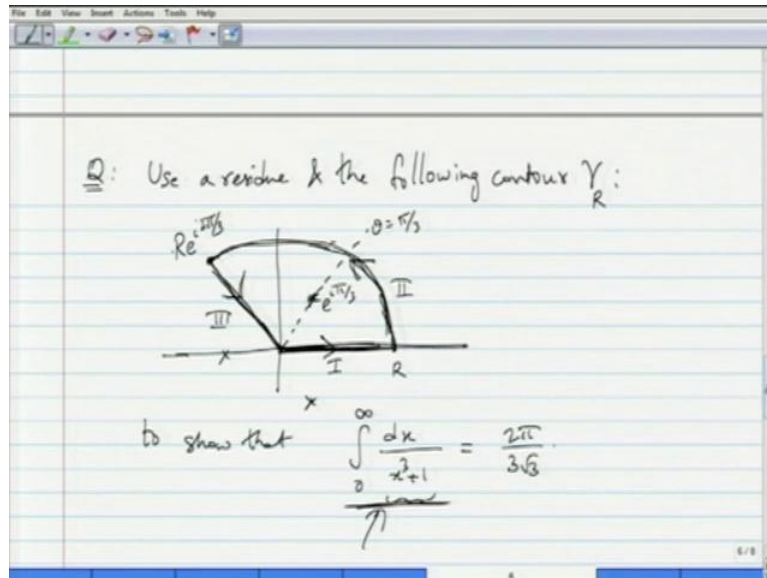 File Edit View Insert Actions Tools Help
Q: Use a residue & the following contour γ_R :
Re^{i2π/3}
θ=π/3
e^{iπ/3}
II
III
I
R
to show that ∫_0^∞ dx/(x^3+1) = 2π/(3√3).
6/8